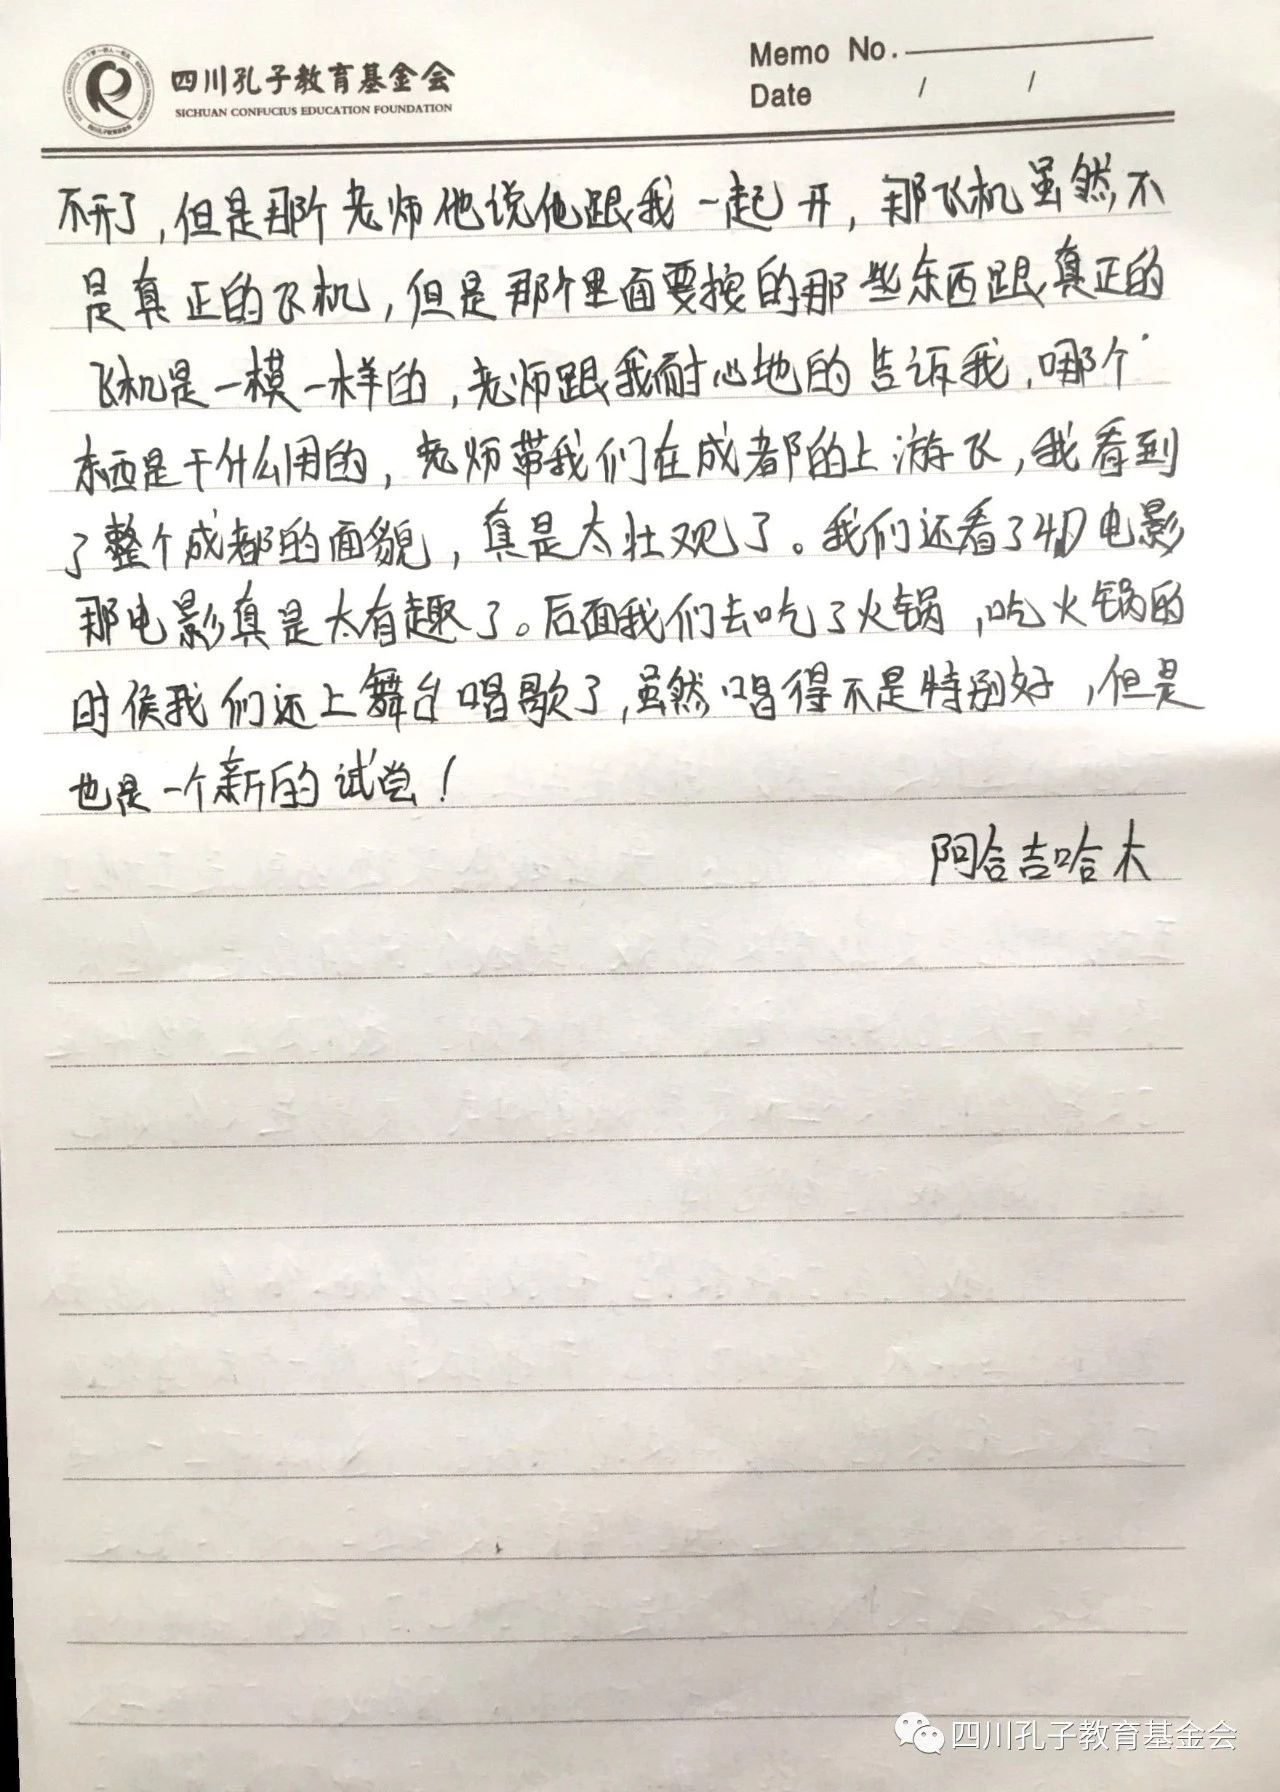 四川孔子教育基金会
SICHUAN CONFUCIUS EDUCATION FOUNDATION
Memo No.
Date / /
不开了，但是那个老师他说他跟我一起开，那飞机虽然不
是真正的飞机，但是那个里面要按的那些东西跟真正的
飞机是一模一样的，老师跟我耐心地的告诉我，哪个
东西是干什么用的，老师带我们在成都的上游飞，我看到
了整个成都的面貌，真是太壮观了。我们还看了4D电影
那电影真是太有趣了。后面我们去吃了火锅，吃火锅的
时候我们还上舞台唱歌了，虽然唱得不是特别好，但是
也是一个新的试尝！
阿合吉哈木
四川孔子教育基金会